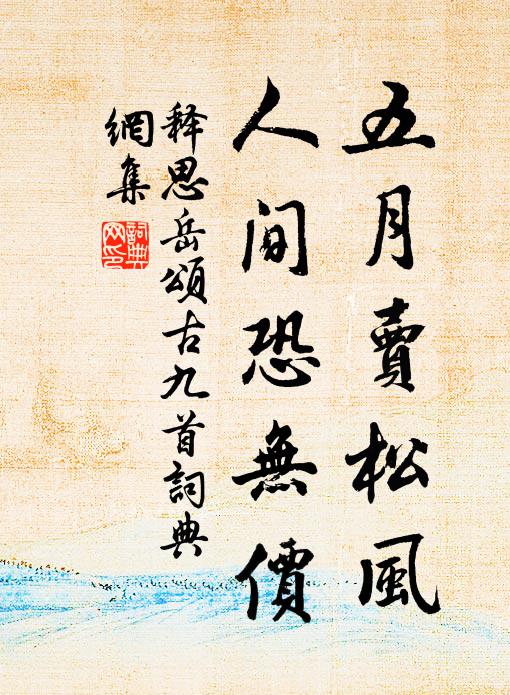 五月賣松風
人間恐無價
釋思岳頌古九首詞典
網集
詞典
网印